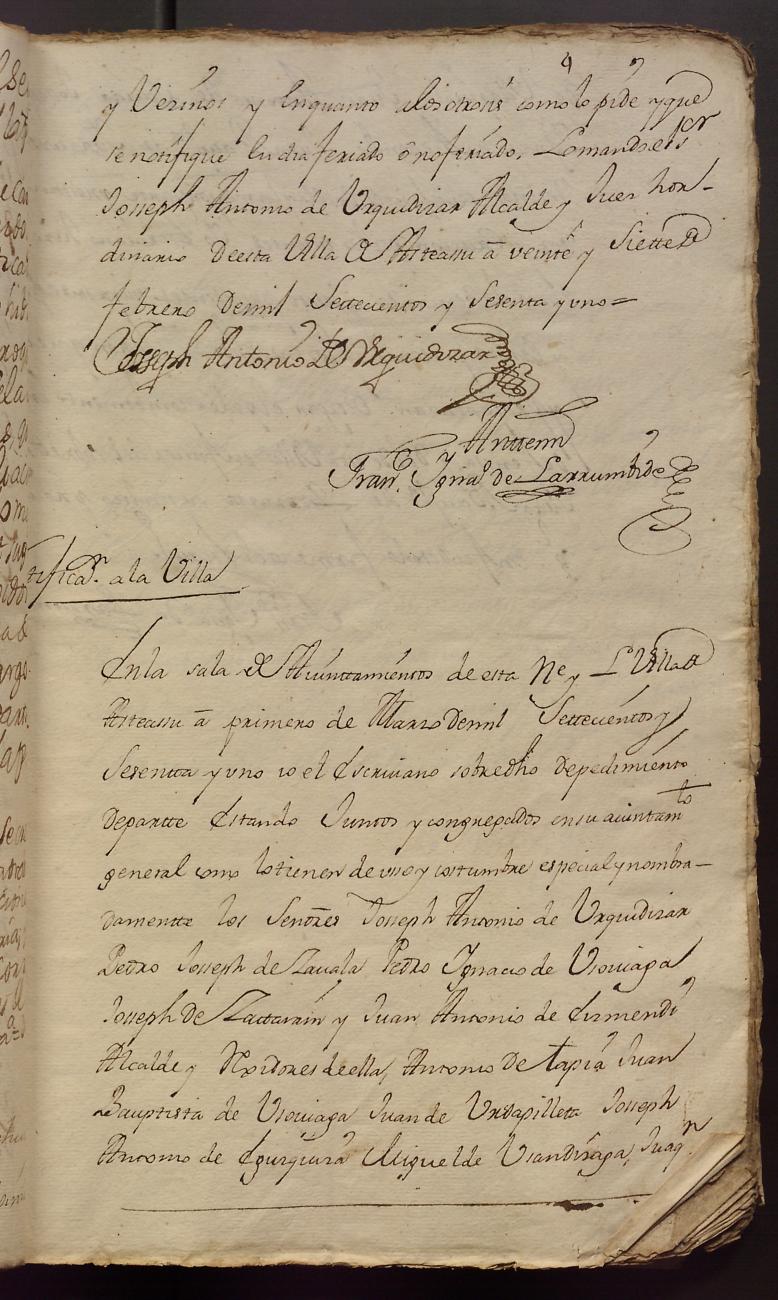 4
y Vezinos y Enquanto alos otrosis como lo pide y que
se notifique en dia feriado ô no feriado, Lo mando el sr
Josseph Antonio de Urquidizar Alcalde y Juez hor-
dinario De esta Villa de Asteasu â veinte y Siette de
febrero De mil Settecientos y Sesenta y uno =
Josseph Antonio De Urquidizar
Anttemi
Franco. Ignao. de Larrumbide
tificaon. a la Villa
En la sala de Aiunttamientos de esta Ne y L Villa de
Asteasu â primero de Marzo De mil Settecientos y
Sesentta y uno io el Escrivano sobredho De pedimiento
De partte Estando Juntos y congregados en su aiuntamto
general como lo tienen de uso y costumbre especial y nombra-
damentte los Señores Josseph Antonio de Urquidizar
Pedro Josseph de Zavala Pedro Ignacio de Usoviaga
Josseph De Zattarain y Juan Antonio de Eizmendi
Alcalde y Rexidores de ella, Antonio De tapia Juan
Bauptista de Usoviaga Juan de Urdapilleta Josseph
Antonio de Eguzquiza Miguel de Usandizaga, Juaqn